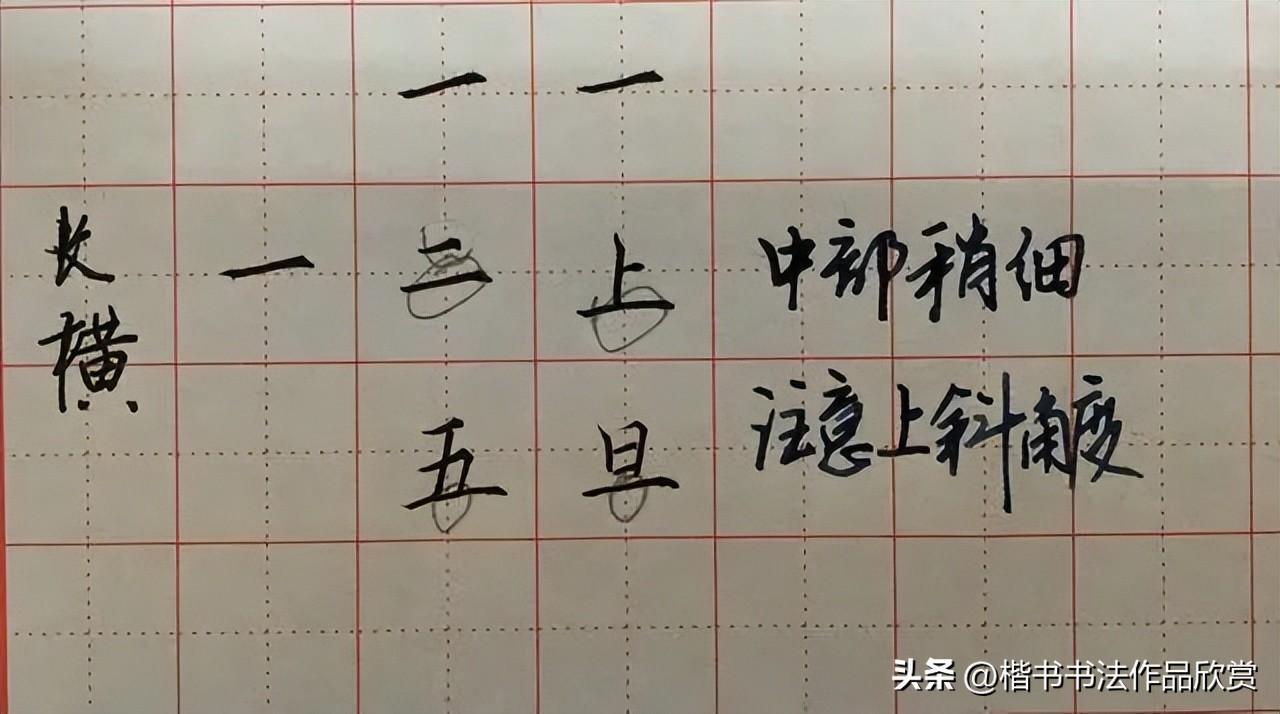 一 一
长横 一 二 上 中部稍细
五 旦 注意上斜角度
头条 @楷书书法作品欣赏